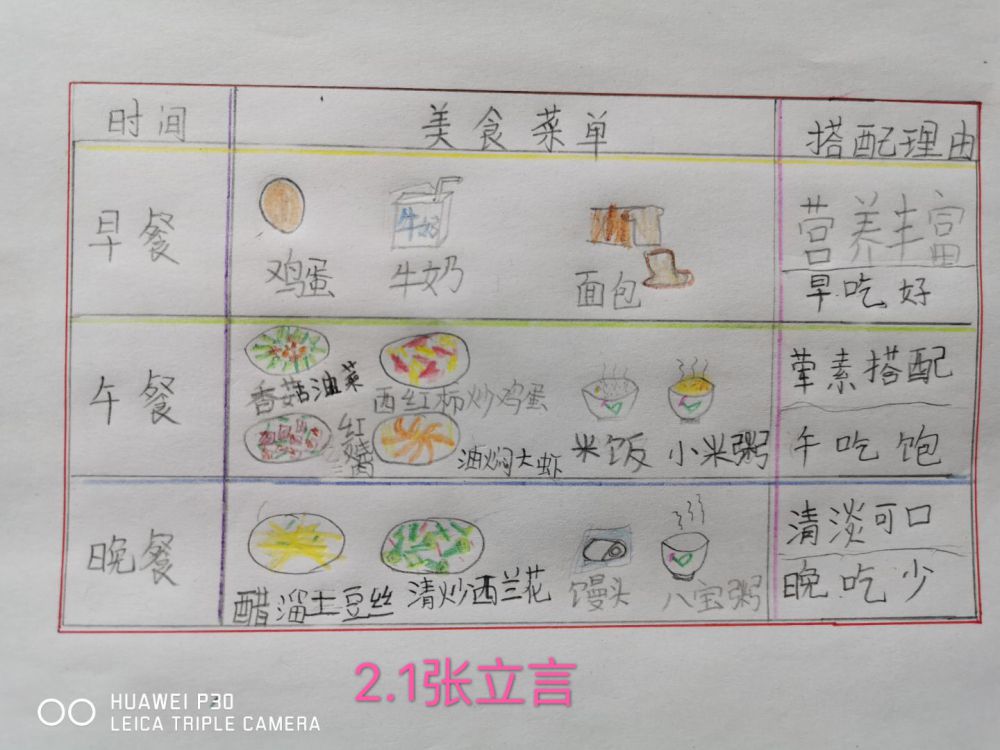 时间 美食菜单 搭配理由
早餐 鸡蛋 牛奶 牛奶 面包 营养丰富
早吃好
午餐 香菇油菜 西红柿炒鸡蛋 荤素搭配
红烧 油焖大虾 米饭 小米粥 午吃饱
晚餐 清淡可口
醋溜土豆丝 清炒西兰花 馒头 八宝粥 晚吃少
2.1张立言
HUAWEI P30
LEICA TRIPLE CAMERA